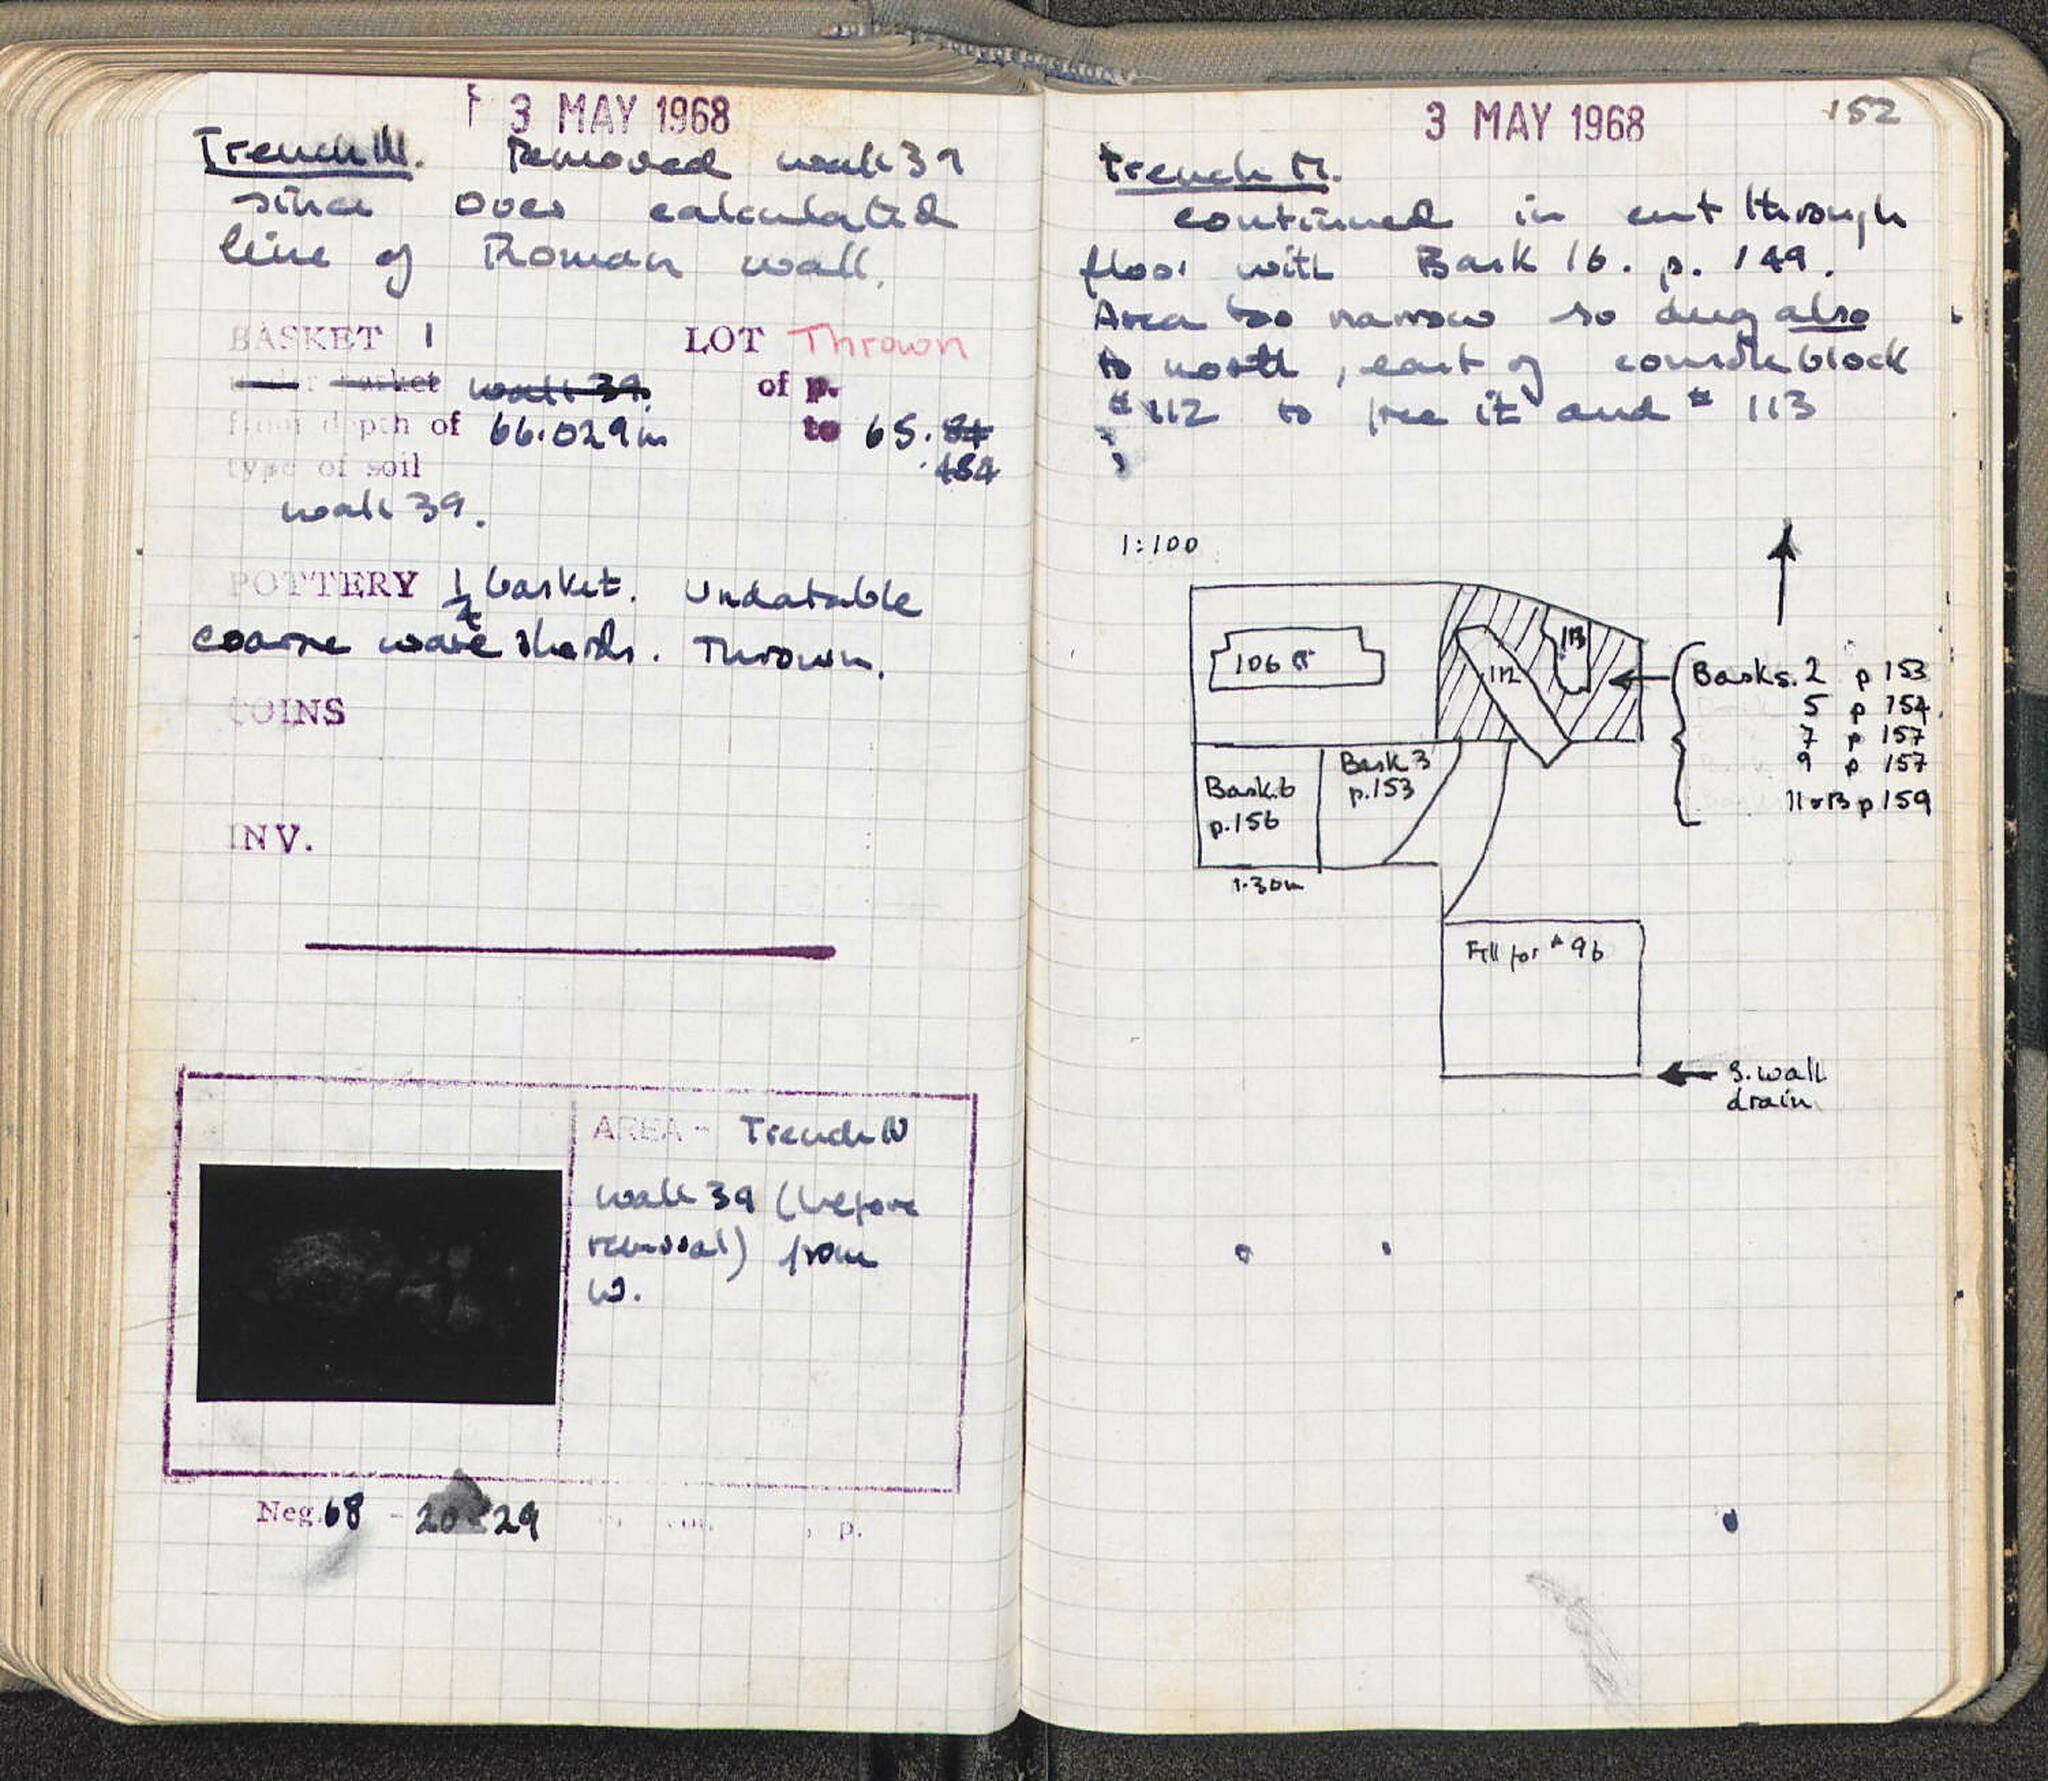 3 MAY 1968
Removed wall 39
since over calculated
line of Roman wall.
BASKET 1 LOT Thrown
wall 39. of p.
floor depth of 66.029m to 65.
.484
type of soil
wall 39.
POTTERY ½ basket. Undatable
coarse ware sherds. Thrown.
COINS
INV.
AREA - Trench IV
Wall 39 (before
removal) from
W.
Neg. 68 - 20 - 29 p.
152
3 MAY 1968
Trench
continued in cut through
floor with Bask 16. p. 149.
Area too narrow so dug also
to north, east of console block
# 112 to free it and # 113
1:100
106
112
113
Basks. 2 p 153
5 p 154.
7 p 157
9 p 157
11 & 13 p 159
Bask 3
p.153
Bask.6
p.156
1.30m
Fill for # 96
S. wall
drain